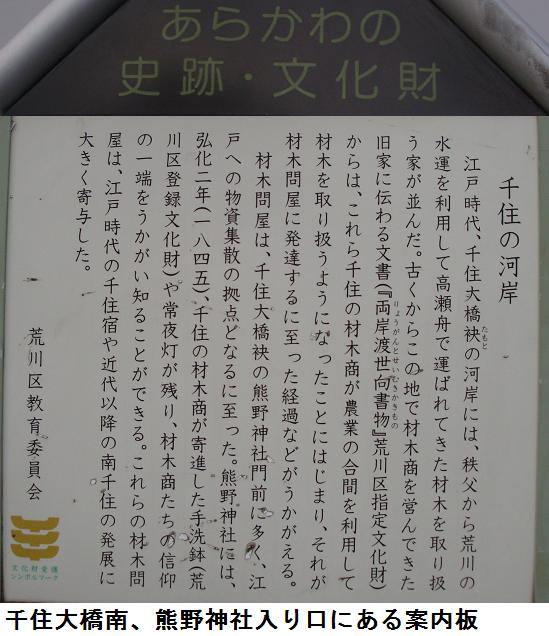 あらかわの
史跡・文化財
千住の河岸
江戸時代、千住大橋袂の河岸には、秩父から荒川の
たもと
水運を利用して高瀬舟で運ばれてきた材木を取り扱
う家が並んだ。古くからこの地で材木商を営んできた
旧家に伝わる文書(『両岸渡世向書物』荒川区指定文化財)
りょうがんとせいむきかきもの
からは、これら千住の材木商が農業の合間を利用して
材木を取り扱うようになったことにはじまり、それが
材木問屋に発達するに至った経過などがうかがえる。
材木問屋は、千住大橋袂の熊野神社門前に多く、江
戸への物資集散の拠点となるに至った。熊野神社には、
弘化二年(一八四五)、千住の材木商が寄進した手洗鉢(荒
川区登録文化財)や常夜灯が残り、材木商たちの信仰
の一端をうかがい知ることができる。これらの材木問
屋は、江戸時代の千住宿や近代以降の南千住の発展に
大きく寄与した。
荒川区教育委員会
文化財愛護
シンボルマーク
千住大橋南、熊野神社入り口にある案内板